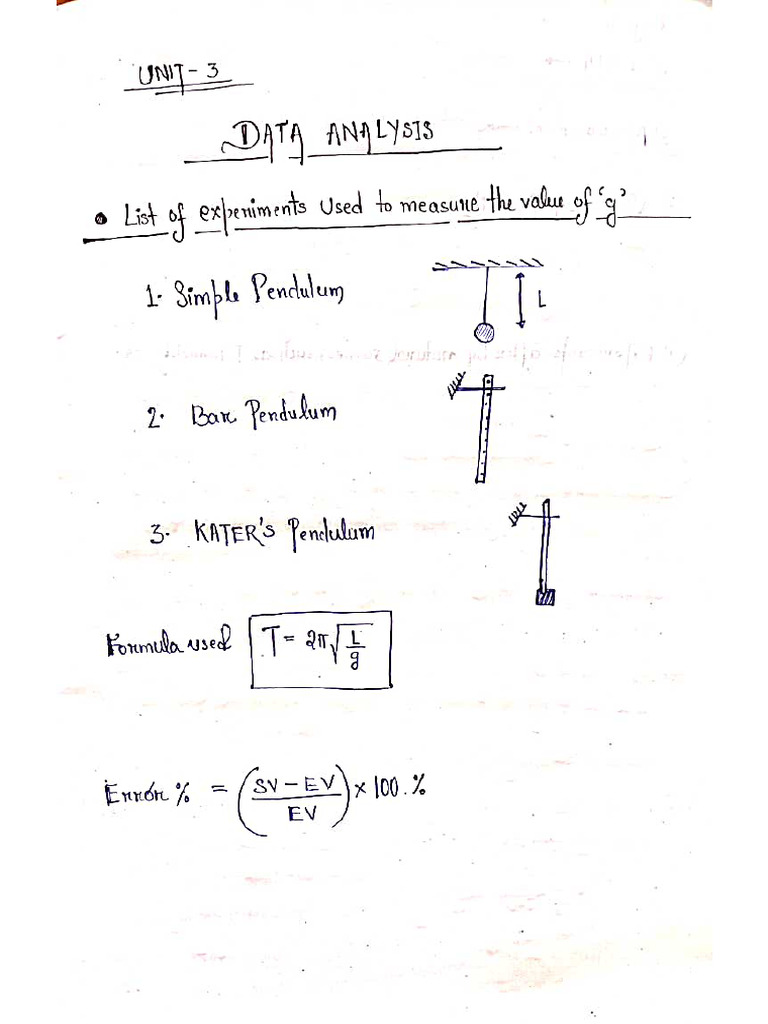 UNIT-3
DATA ANALYSIS
• List of experiments Used to measure the value of 'g'
1. Simple Pendulum
L
2. Bar Pendulum
3. KATER'S Pendulum
Formula used T = 2π√(L/g)
Error % = ((SV - EV)/EV) × 100.%